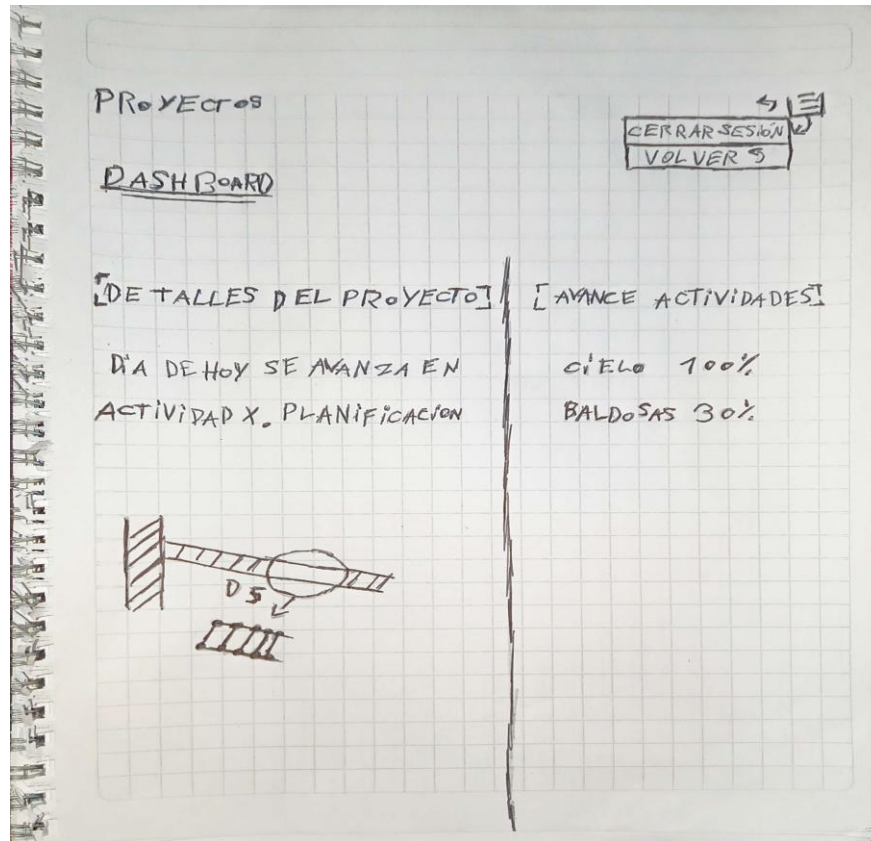 PROYECTOS
CERRAR SESIÓN
VOLVER
DASHBOARD
[DETALLES DEL PROYECTO]
DÍA DE HOY SE AVANZA EN
ACTIVIDAD X. PLANIFICACION
[AVANCE ACTIVIDADES]
CIELO 100%
BALDOSAS 30%